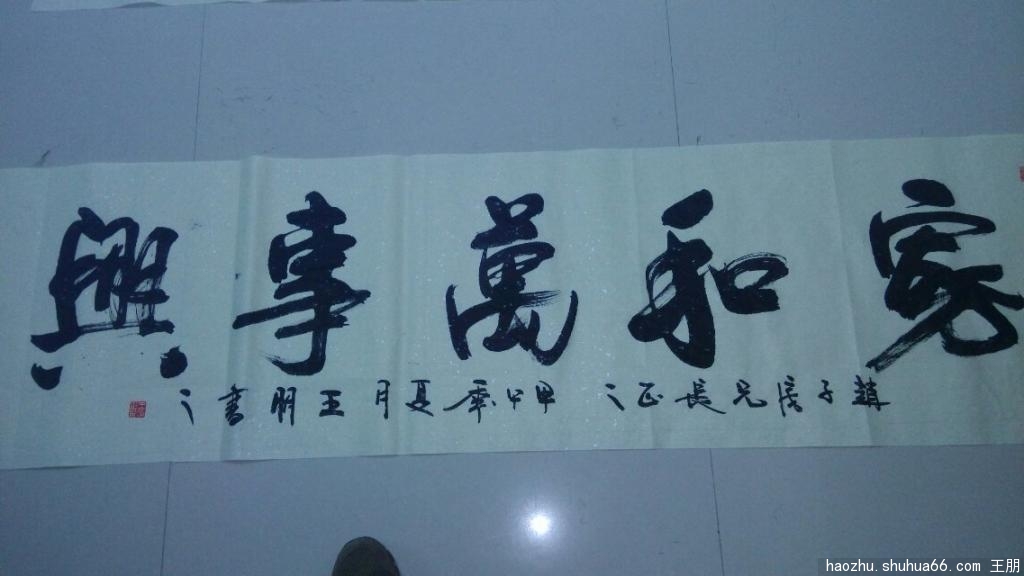 家和萬事興
趙子彦兄長正之 甲午季夏月王朋書之
haozhu.shuhua66.com 王朋